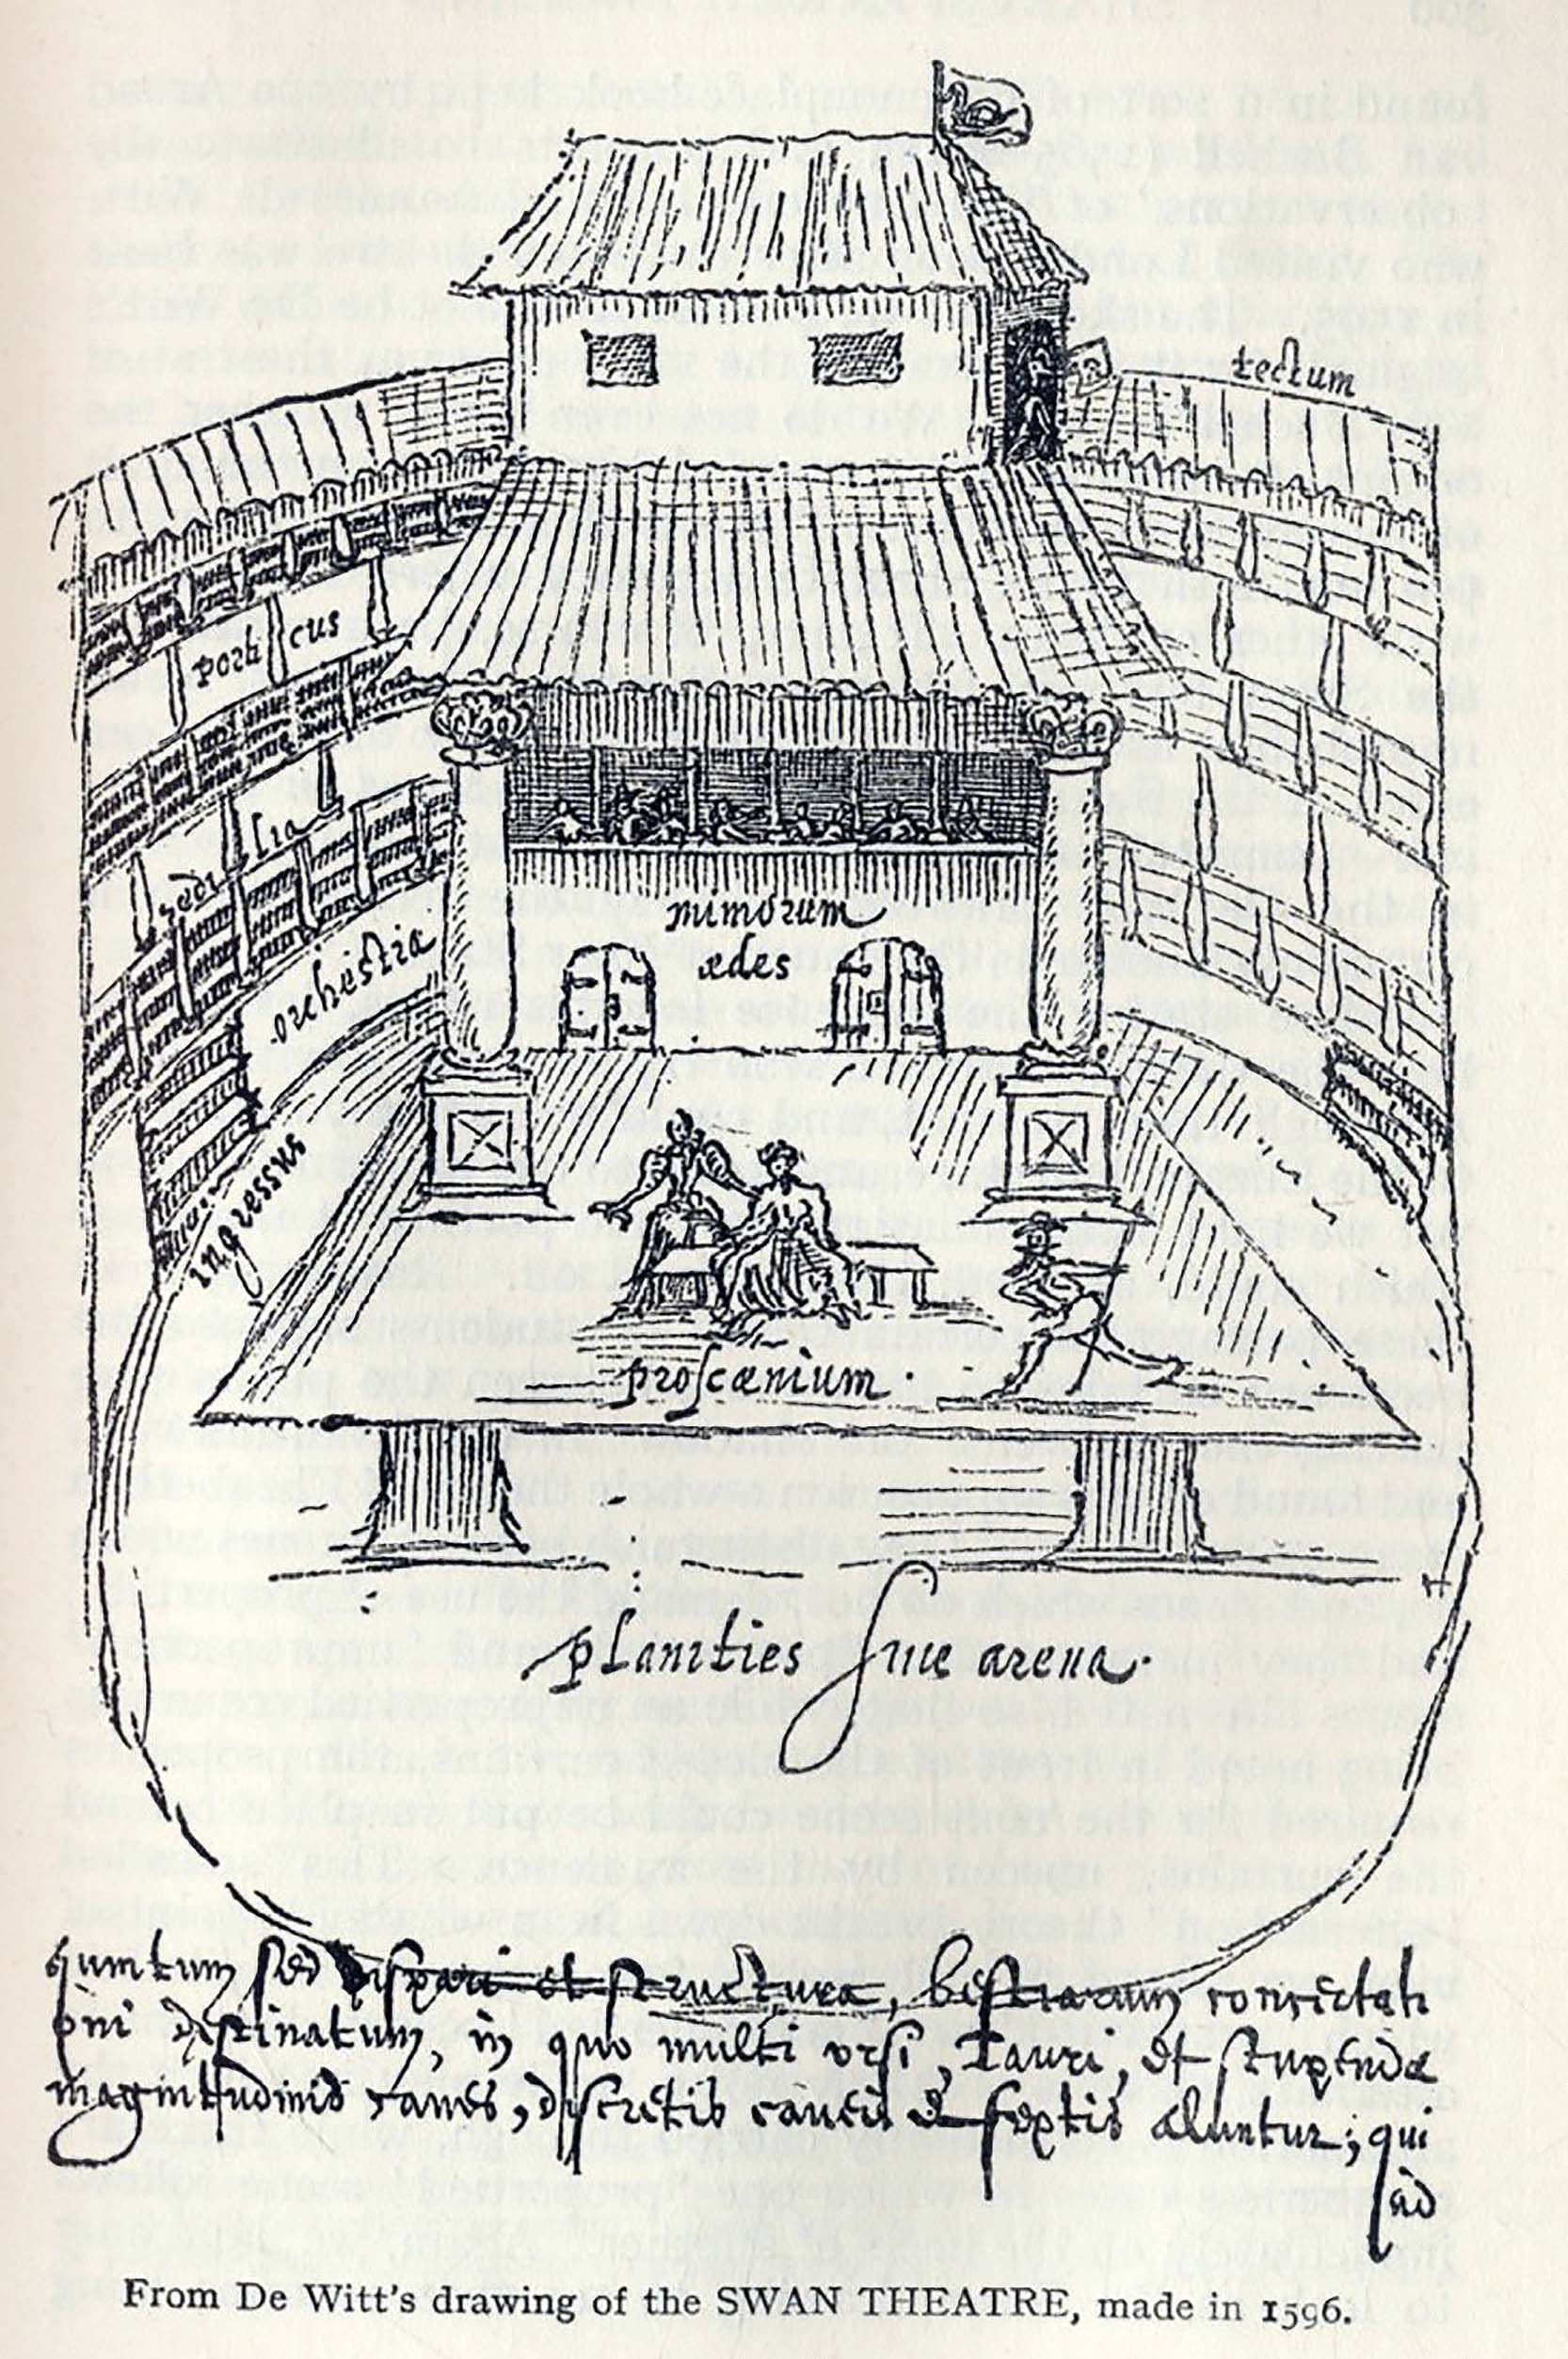 tectum
porticus
sedilia
orchestra
mimorum
ædes
ingressus
proscænium.
planities siue arena.
quintum sed dispari et structura, bestiarum concertati
oni destinatum, in quo multi vrsi, Tauri, et stupendæ
magnitudinis canes, discretis caueis & septis aluntur; qui
ad
From De Witt's drawing of the SWAN THEATRE, made in 1596.